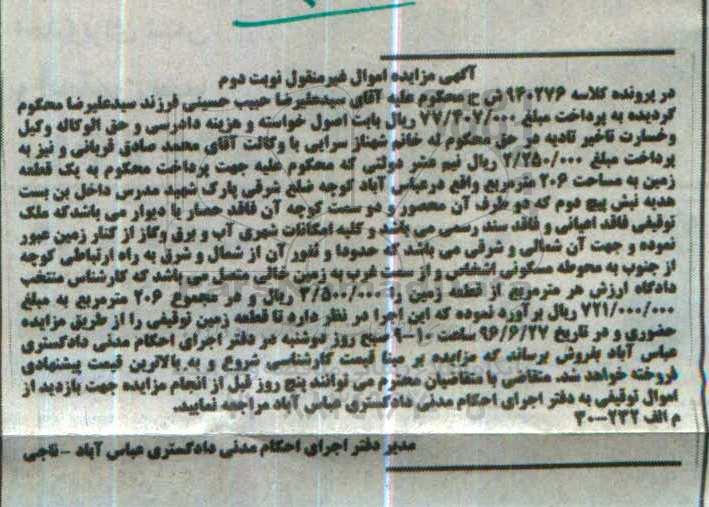 آگهی مزایده اموال غیرمنقول نوبت دوم
در پرونده کلاسه ۹۴۰۲۷۶ ش ح محکوم علیه آقای سیدعلیرضا حبیب حسینی فرزند سیدعلیرضا محکوم
گردیده به پرداخت مبلغ ۷۷/۴۰۷/۰۰۰ ریال بابت اصول خواسته و هزینه دادرسی و حق الوکاله وکیل
وخسارت تاخیر تادیه در حق محکوم له خانم مهناز سرایی با وکالت آقای محمد صادق قربانی و نیز به
پرداخت مبلغ ۲/۲۵۰/۰۰۰ ریال نیم عشر دولتی که محکوم علیه جهت پرداخت محکوم به یک قطعه
زمین به مساحت ۲۰۶ مترمربع واقع درعباس آباد کوچه ضلع شرقی پارک شهید مدرس داخل بن بست
هدیه نبش پیچ دوم که دو طرف آن محصور و دو سمت کوچه آن فاقد حصار یا دیوار می باشدکه ملک
توقیفی فاقد اعیانی و فاقد سند رسمی می باشد و کلیه امکانات شهری آب و برق وگاز از کنار زمین عبور
نموده و جهت آن شمالی و شرقی می باشد که حدودا و ثغور آن از شمال و شرق به راه ارتباطی کوچه
از جنوب به محوطه مسکونی اشخاص و از سمت غرب به زمین خالی متصل می باشد که کارشناس منتخب
دادگاه ارزش هر مترمربع از قطعه زمین را ۳/۵۰۰/۰۰۰ ریال و در مجموع ۲۰۶ مترمربع به مبلغ
۷۲۱/۰۰۰/۰۰۰ ریال برآورده نموده که این اجرا در نظر دارد تا قطعه زمین توقیفی را از طریق مزایده
حضوری و در تاریخ ۹۶/۶/۲۷ ساعت ۱۰-۹ صبح روز دوشنبه در دفتر اجرای احکام مدنی دادگستری
عباس آباد بفروش برساند که مزایده بر مبنا لیست کارشناسی شروع و به بالاترین قیمت پیشنهادی
فروخته خواهد شد. متقاضی یا متقاضیان محترم می توانند پنج روز قبل از انجام مزایده جهت بازدید از
اموال توقیفی به دفتر اجرای احکام مدنی دادگستری عباس آباد مراجعه نمایند.
م الف ۲۳۲-۳۰
مدیر دفتر اجرای احکام مدنی دادگستری عباس آباد - تاجی